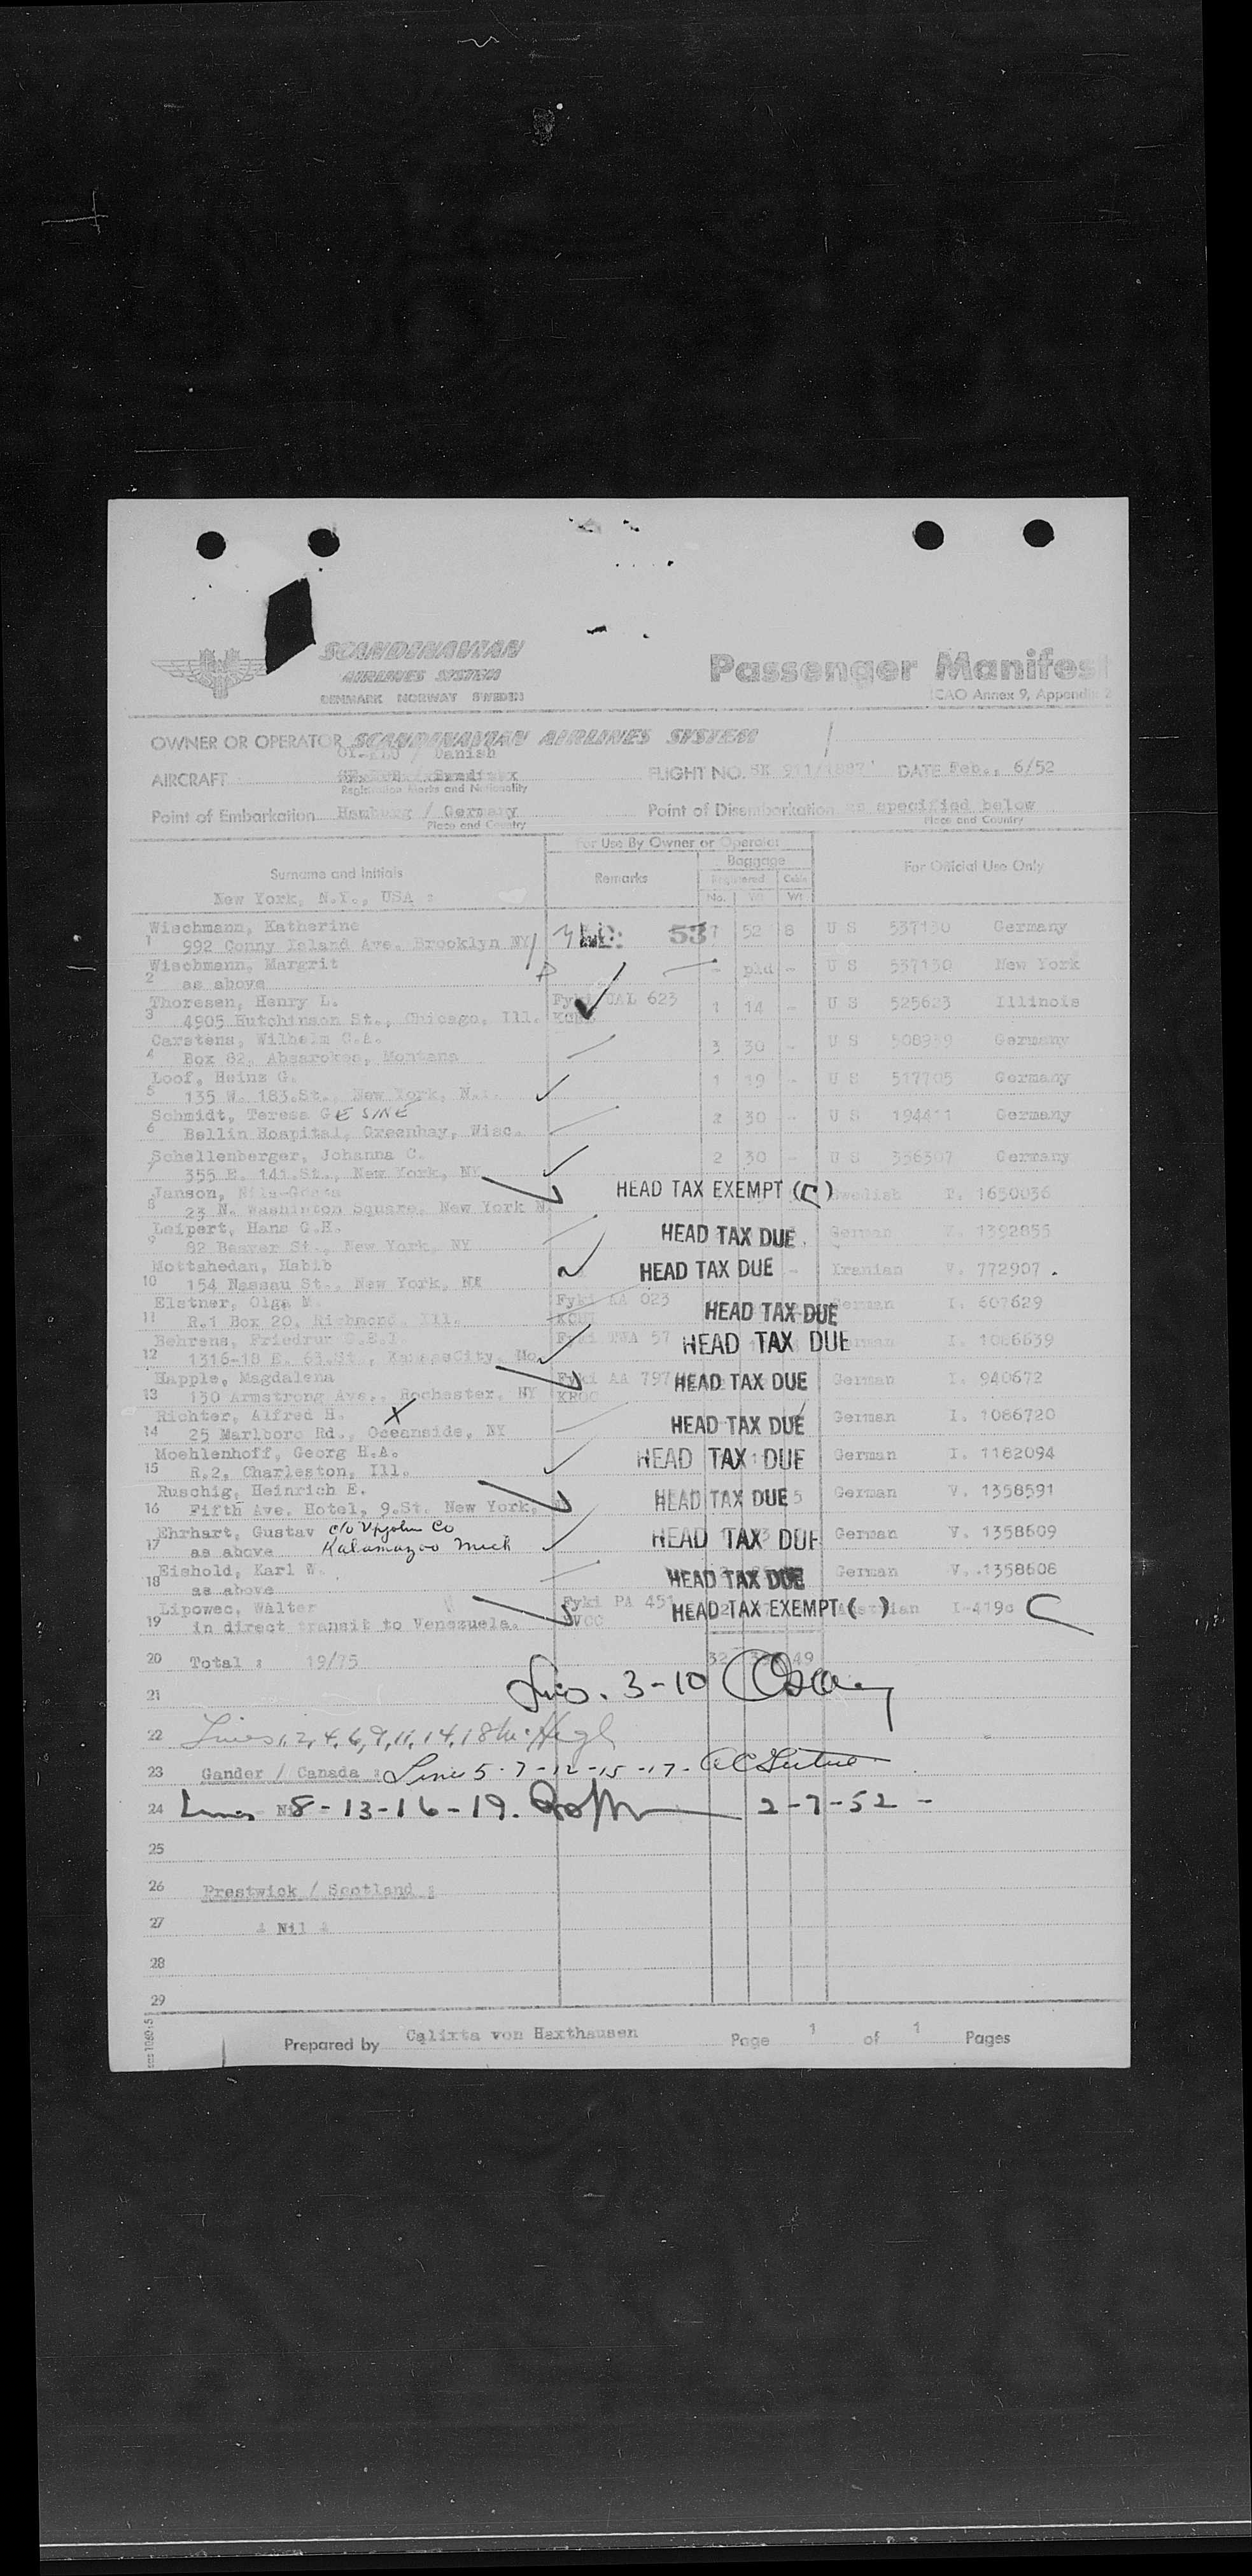 SCANDINAVIAN
AIRLINES SYSTEM
DENMARK NORWAY SWEDEN
Passenger Manifest
ICAO Annex 9, Appendix 2
OWNER OR OPERATOR SCANDINAVIAN AIRLINES SYSTEM
/ Danish
AIRCRAFT FLIGHT NO. SK 911/ DATE Feb., 6/52
Registration Marks and Nationality
Point of Embarkation Hamburg / Germany Point of Disembarkation as specified below
Place and Country Place and Country
For Use By Owner or Operator
Baggage
Surname and Initials Remarks Registered Cabin For Official Use Only
New York, N.Y., USA : No. Wt Wt
Wischmann, Katherine
1 992 Conny Island Ave. Brooklyn NY 53 7 52 8 U S 537130 Germany
Wischmann, Margrit
2 as above - pld - U S 537130 New York
Thoresen, Henry L. Fyki UAL 623
3 4905 Hutchinson St., Chicago, Ill. 1 14 - U S 525623 Illinois
Carstens, Wilhelm C.A.
4 Box 82, Absarokes, Montana 3 30 - U S 508939 Germany
Loof, Heinz G.
5 135 W. 183.St., New York, N.Y. 1 19 - U S 517705 Germany
Schmidt, Teresa GESINE
6 Bellin Hospital, Greenbay, Wisc. 2 30 - U S 194411 Germany
Schellenberger, Johanna C.
7 355 E. 141.St., New York, NY 2 30 - U S 356307 Germany
Janson, Nils-Gösta HEAD TAX EXEMPT (C) Swedish P. 1650036
8 23 N. Washinton Square, New York N
Leipert, Hans G.H. HEAD TAX DUE German V. 1392855
9 82 Beaver St., New York, NY
Mottahedan, Habib HEAD TAX DUE - Iranian V. 772907
10 154 Nassau St., New York, NY
Elstner, Olga M. Fyki AA 023 HEAD TAX DUE German I. 607629
11 R.1 Box 20, Richmond, Ill.
Behrens, Friedrun G.E.I. Fyki TWA 57 HEAD TAX DUE German I. 1086639
12 1316-18 E. 63.St., KansasCity, Mo.
Happle, Magdalena Fyki AA 797 HEAD TAX DUE German I. 940672
13 130 Armstrong Ave., Rochester, NY KROC
Richter, Alfred H. X HEAD TAX DUE German I. 1086720
14 25 Marlboro Rd., Oceanside, NY
Moehlenhoff, Georg H.A. HEAD TAX DUE German I. 1182094
15 R.2, Charleston, Ill.
Ruschig, Heinrich E. HEAD TAX DUE 5 German V. 1358591
16 Fifth Ave. Hotel, 9.St. New York,
Ehrhart, Gustav c/o Upjohn Co HEAD TAX DUE German V. 1358609
17 as above Kalamazoo Mich
Eishold, Karl W. HEAD TAX DUE German V. 1358608
18 as above
Lipowec, Walter Fyki PA 451 HEAD TAX EXEMPT ( ) Austrian I-419c C
19 in direct transit to Venezuela. SVCC
20 Total : 19/75 32 49
21 Lines. 3-10
22 Lines 1, 2, 4, 6, 9, 11, 14, 18
23 Gander / Canada : Lines 5-7-12-15-17-
24 Lines 8-13-16-19. 2-7-52 -
25
26 Prestwick / Scotland :
27 Nil
28
29
Prepared by Calixta von Haxthausen Page 1 of 1 Pages